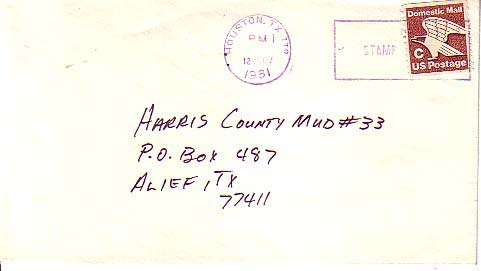 HOUSTON, TX 770
PM
12 NOV
1981
STAMP
Domestic Mail
C
US Postage
HARRIS COUNTY MUD #33
P.O. BOX 487
ALIEF, TX
77411